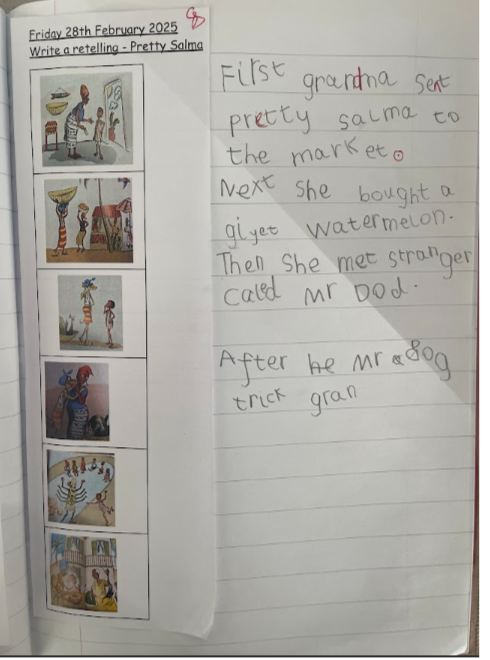 Friday 28th February 2025
Write a retelling - Pretty Salma
First grandma sent
pretty salma to
the market.
Next she bought a
giyet watermelon.
Then she met stranger
caled Mr Dod.
After he Mr
trick gran